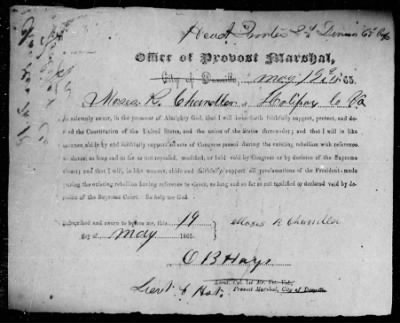 Head Quarters 2d Division 6th
Office of Provost Marshal,
City of Danville, May 19th 1865.
I, Moses R. Chandler of Halifax Co Va
do solemnly swear, in the presence of Almighty God, that I will henceforth faithfully support, protect, and de-
fend the Constitution of the United States, and the union of the States thereunder; and that I will, in like
manner, abide by and faithfully support all acts of Congress passed during the existing rebellion with reference
to slaves, so long and so far as not repealed, modified, or held void by Congress or by decision of the Supreme
Court; and that I will, in like manner, abide and faithfully support all proclamations of the President, made
during the existing rebellion having reference to slaves, so long and so far as not modified or declared void by de-
cision of the Supreme Court. So help me God.
Subscribed and sworn to before me, this 19
day of May 1865.
Moses R Chandler
O B Hays
Lieut &
Lieut. Col. 1st
Provost Marshal, City of Danville